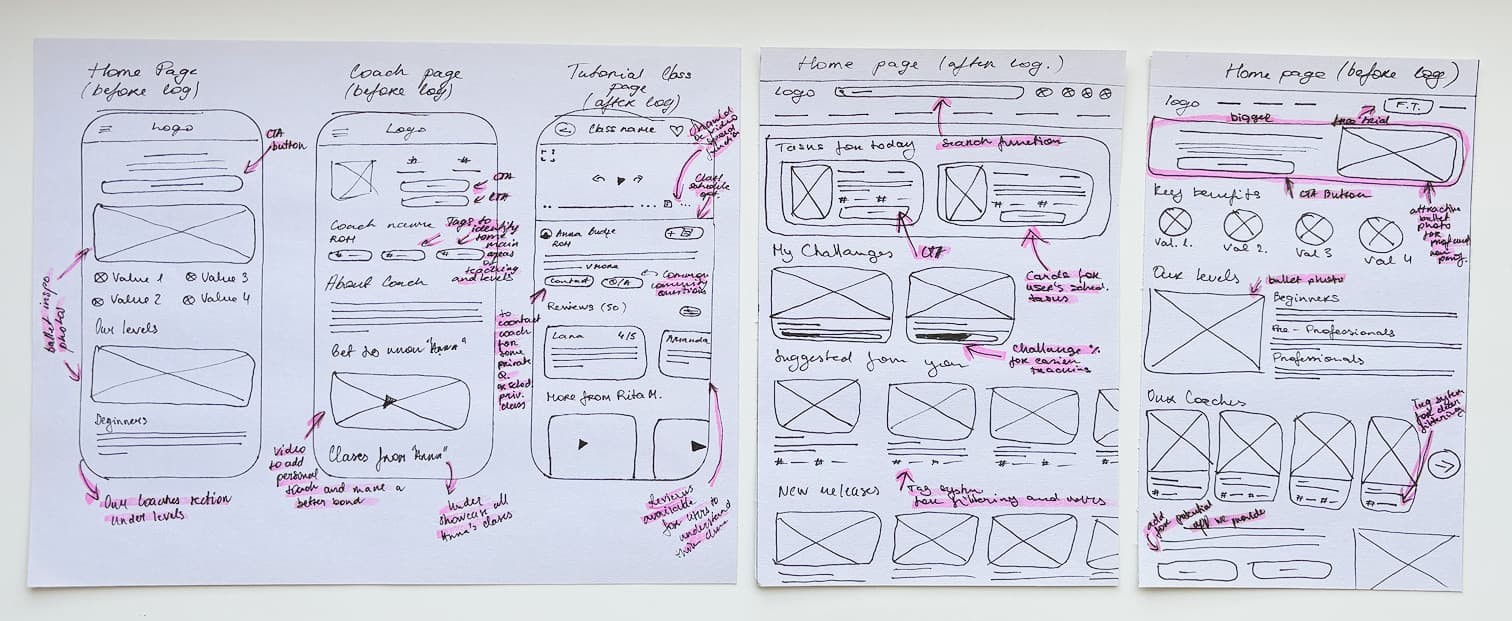 Home Page
(before log)
Logo
CTA
button
Value 1
Value 3
Value 2
Value 4
ballet inspo
photos
Our levels
Beginners
Our Coaches section
under levels
Coach page
(before log)
Logo
#
#
CTA
CTA
Coach name
ROH
Tags to
identify
some
main
areas
of
teaching
and levels
#
#
#
About Coach
Get to know "Anna"
Video
to add
personal
touch and make a
better bond
Clases from "Anna"
Under
showcase all
Anna's classes
Tutorial Class
page
(after log)
Class name
Class
schedule
Anna Budge
ROH
+
v more
Contact
Q/A
Common
community
questions
to
contact
coach
for
some
private
Q.
or
priv.
class
Reviews (50)
Lana
4/5
Amanda
More from Rita M.
Reviews
available
for users to
understand
Home page (after log.)
Logo
Search function
Tasks for today
# #
# #
CTA
Cards for
user's sched.
tasks
My Challanges
Challange %
for easier
tracking
Suggested from you
# #
# #
# #
Tag system
for filtering and
New releases
Home page (before log)
logo
F.T.
free trial
bigger
CTA Button
attractive
ballet
photo
for
Key benefits
Val. 1.
Val 2.
Val 3
Val 4
Our levels
ballet photo
Beginners
Pre - Professionals
Professionals
Our Coaches
Tag system
for
filtering
#
#
#
#
add
for potential
app we provide